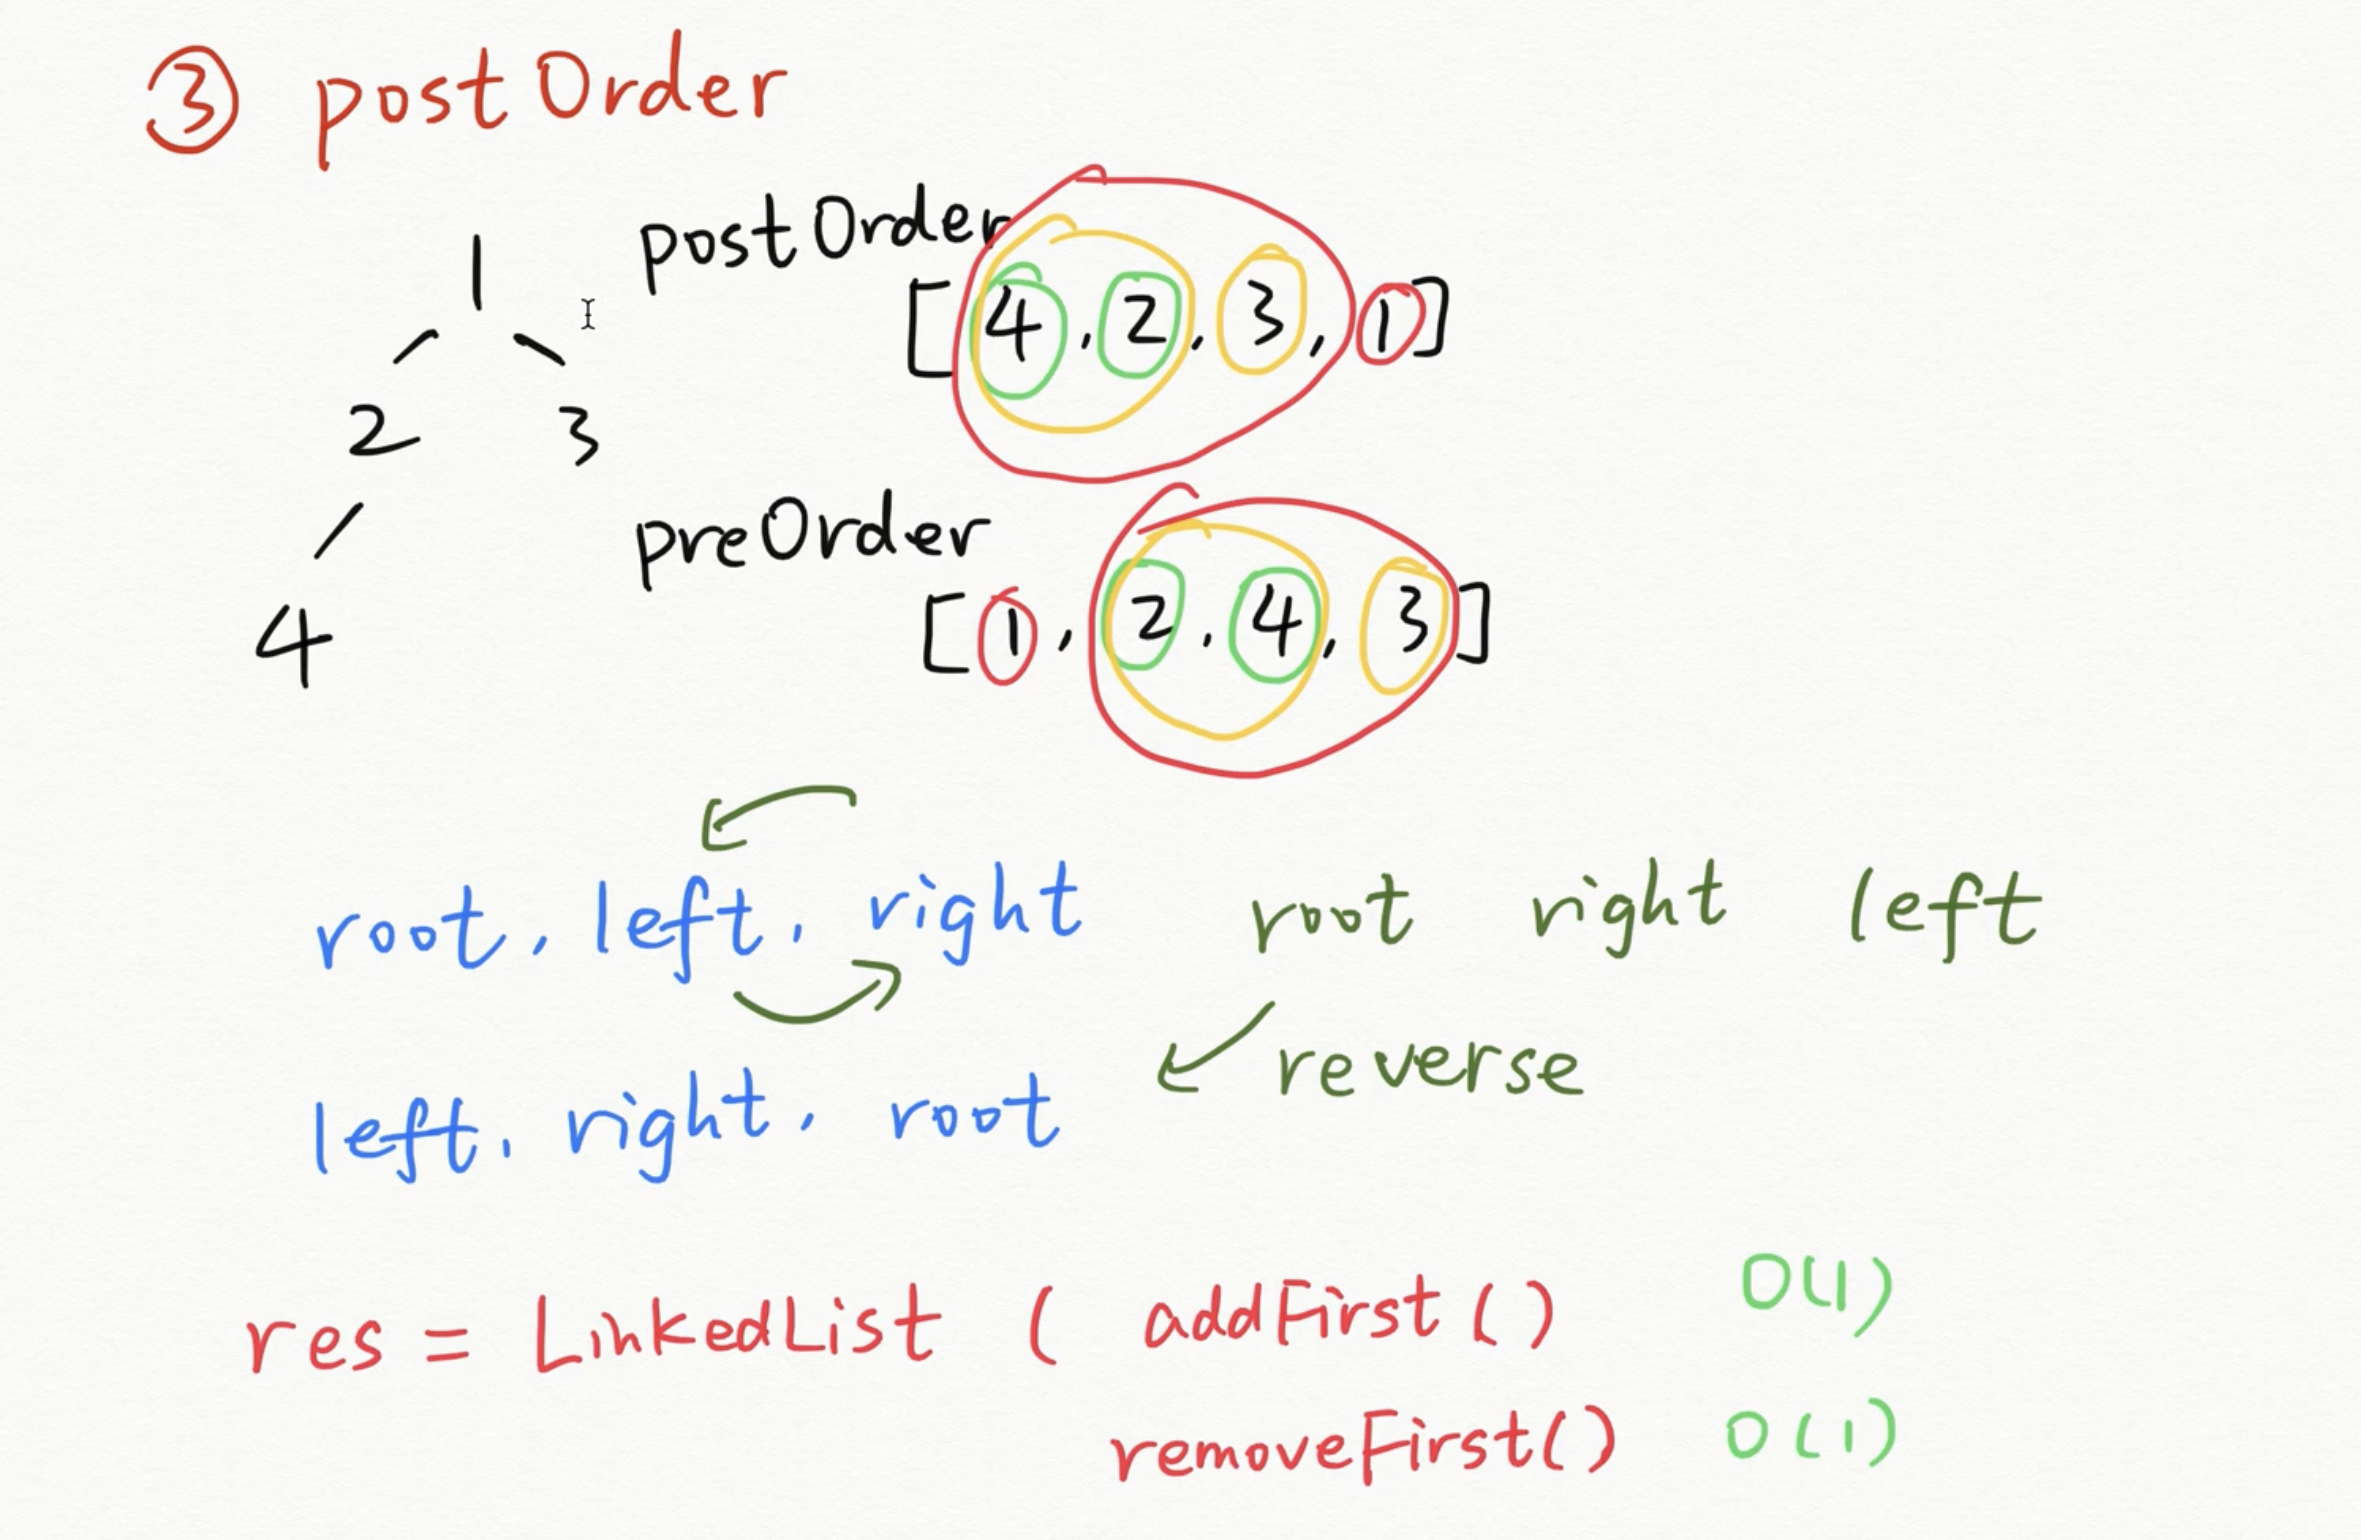 ③ postOrder
1
2 3
4
postOrder
[4, 2, 3, 1]
preOrder
[1, 2, 4, 3]
root, left, right
root right left
reverse
left, right, root
res = LinkedList ( addFirst() O(1)
removeFirst() O(1)